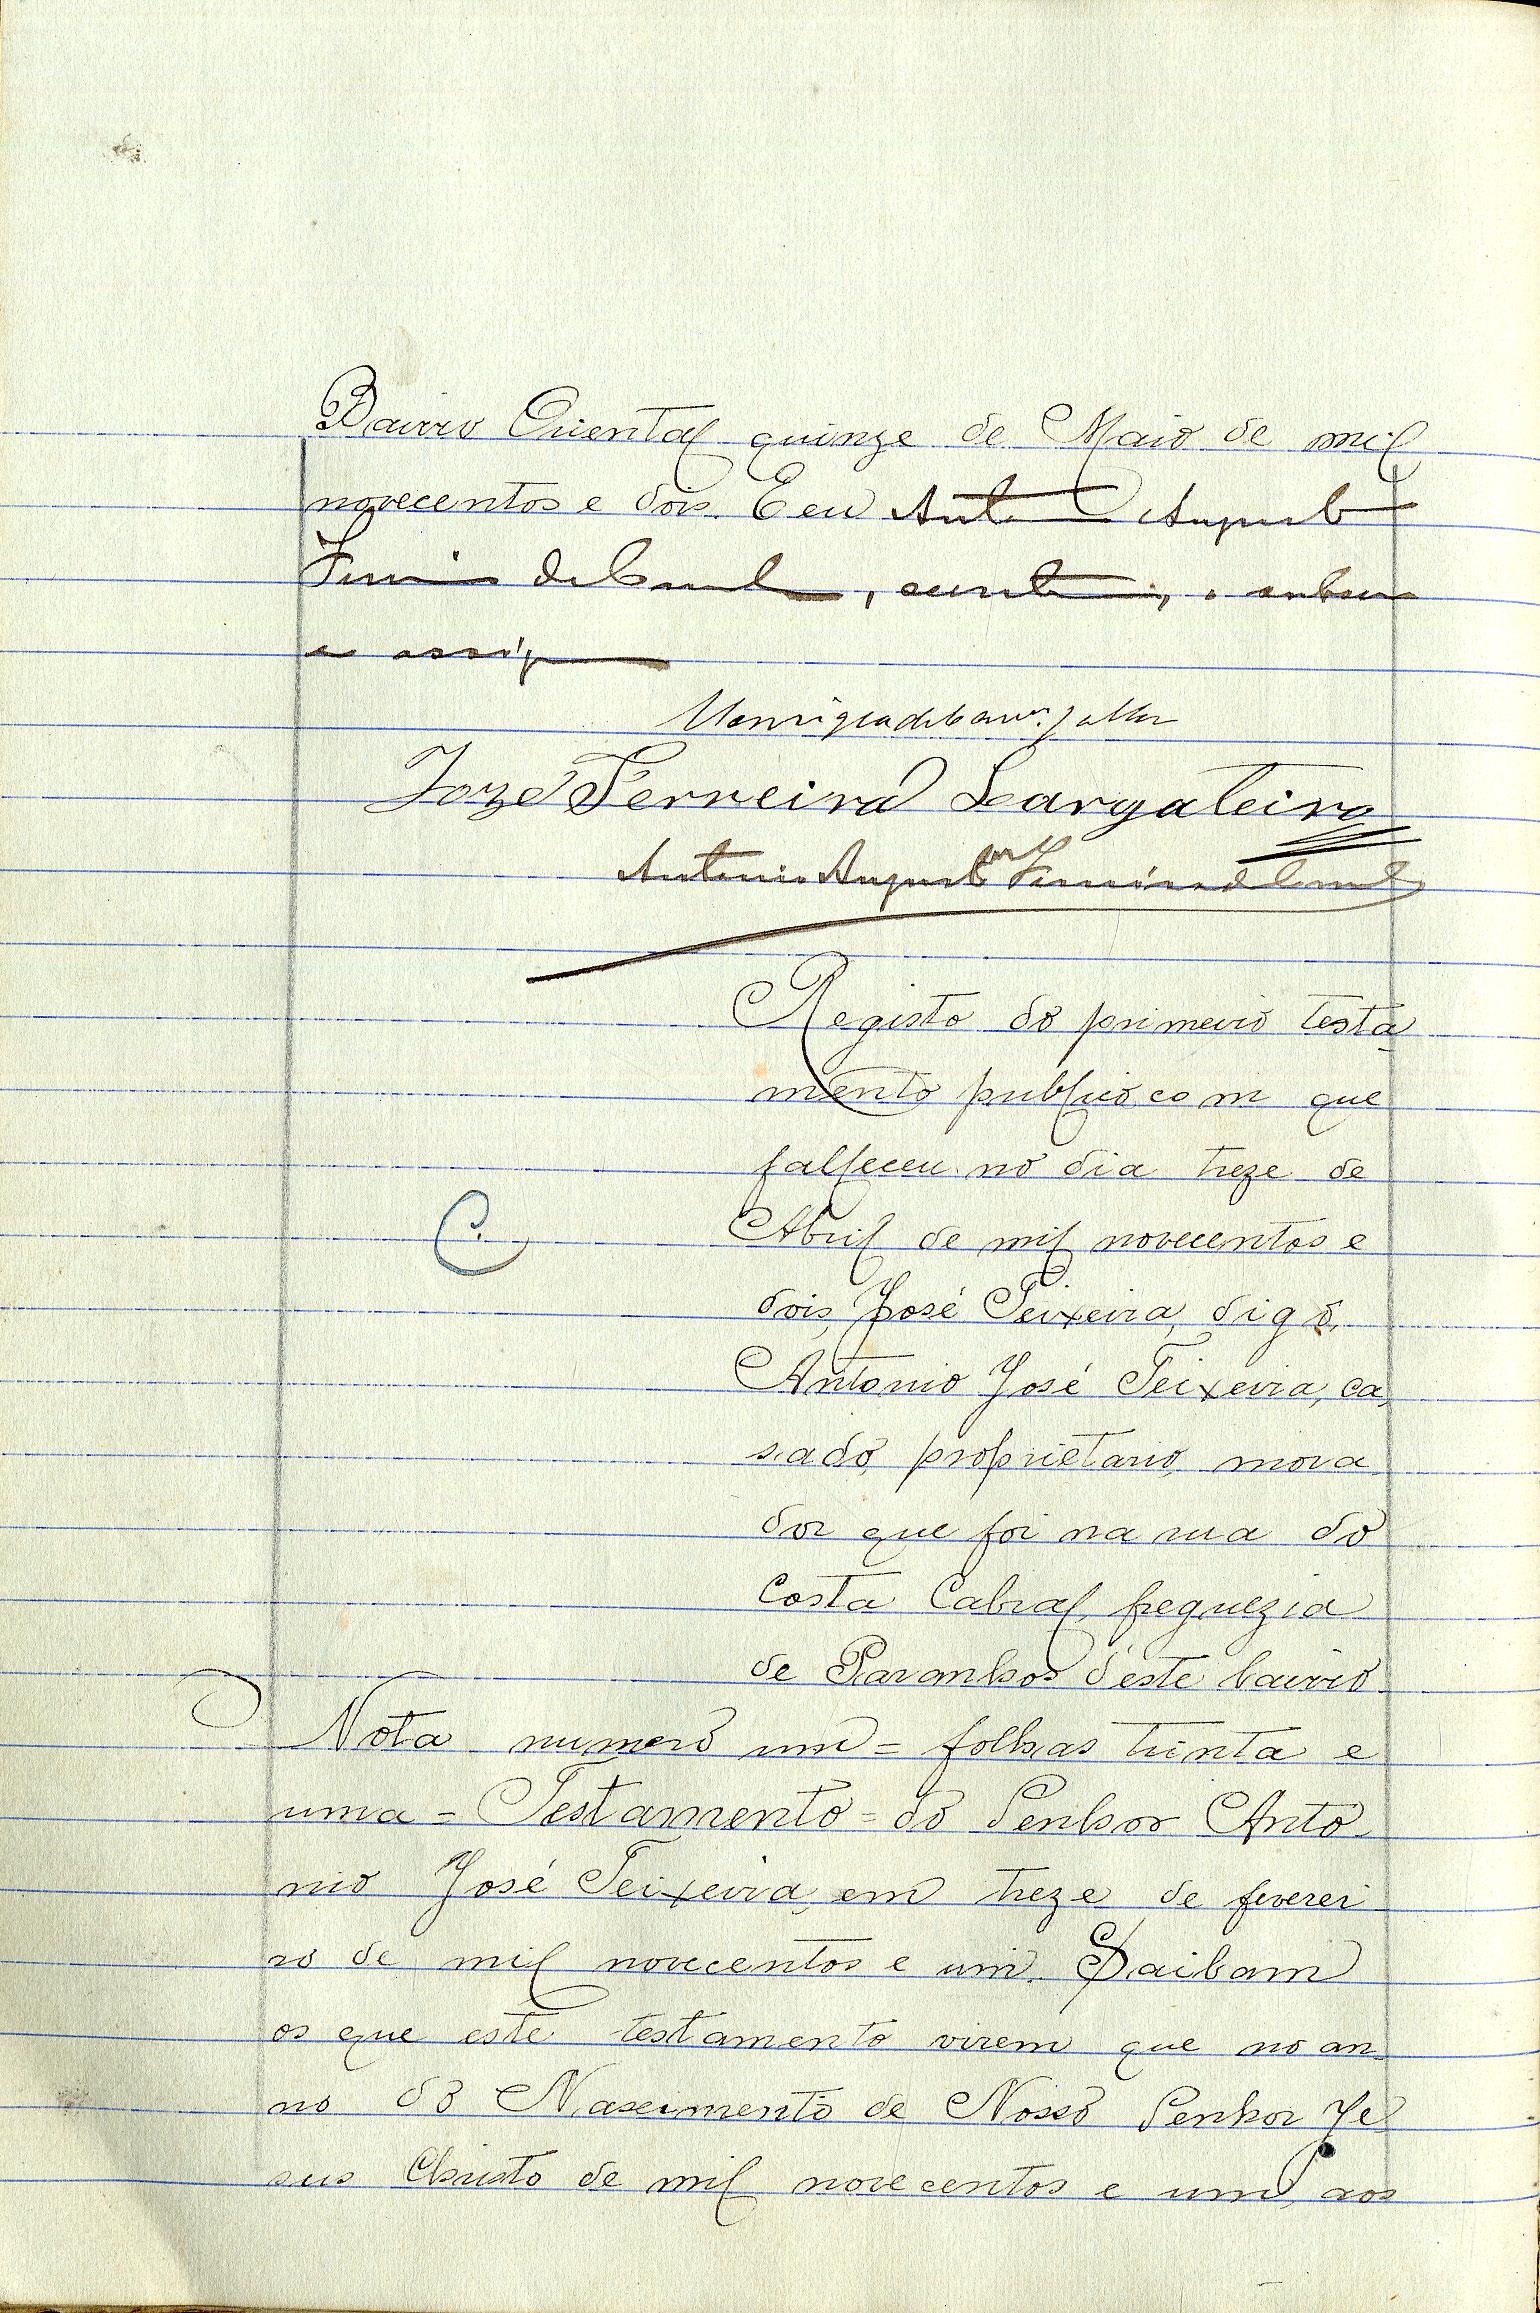 Bairro Oriental quinze de Maio de mil
novecentos e dois. E eu Antonio Augusto
Ferreira de, escrivão, o subscrevi
e assigno
José Ferreira Largateiro
Antonio Augusto Ferreira de
Registo do primeiro testa-
mento publico com que
falleceu no dia treze de
Abril de mil novecentos e
dois, José Teixeira, digo,
Antonio José Teixeira, ca-
sado, proprietario, mora-
dor que foi na rua do
Costa Cabral, freguezia
de Paranhos d'este bairro
C.
Nota numero um = folhas trinta e
uma = Testamento = do Senhor Anto-
nio José Teixeira, em treze de feverei-
ro de mil novecentos e um. Saibam
os que este testamento virem que no an-
no do Nascimento de Nosso Senhor Je-
sus Christo de mil novecentos e um, aos